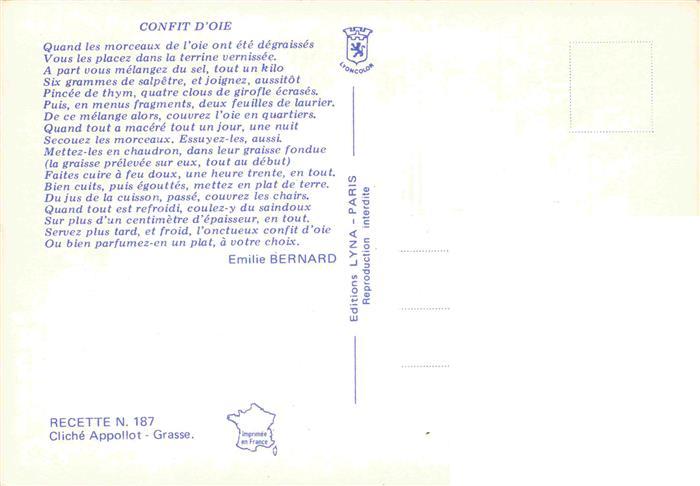 CONFIT D'OIE
Quand les morceaux de l'oie ont été dégraissés
Vous les placez dans la terrine vernissée.
A part vous mélangez du sel, tout un kilo
Six grammes de salpêtre, et joignez, aussitôt
Pincée de thym, quatre clous de girofle écrasés.
Puis, en menus fragments, deux feuilles de laurier.
De ce mélange alors, couvrez l'oie en quartiers.
Quand tout a macéré tout un jour, une nuit
Secouez les morceaux. Essuyez-les, aussi.
Mettez-les en chaudron, dans leur graisse fondue
(la graisse prélevée sur eux, tout au début)
Faites cuire à feu doux, une heure trente, en tout.
Bien cuits, puis égouttés, mettez en plat de terre.
Du jus de la cuisson, passé, couvrez les chairs.
Quand tout est refroidi, coulez-y du saindoux
Sur plus d'un centimètre d'épaisseur, en tout.
Servez plus tard, et froid, l'onctueux confit d'oie
Ou bien parfumez-en un plat, à votre choix.
Emilie BERNARD
RECETTE N. 187
Cliché Appollot - Grasse.
Imprimée
en France
LYONCOLOR
Editions LYNA - PARIS
Reproduction interdite